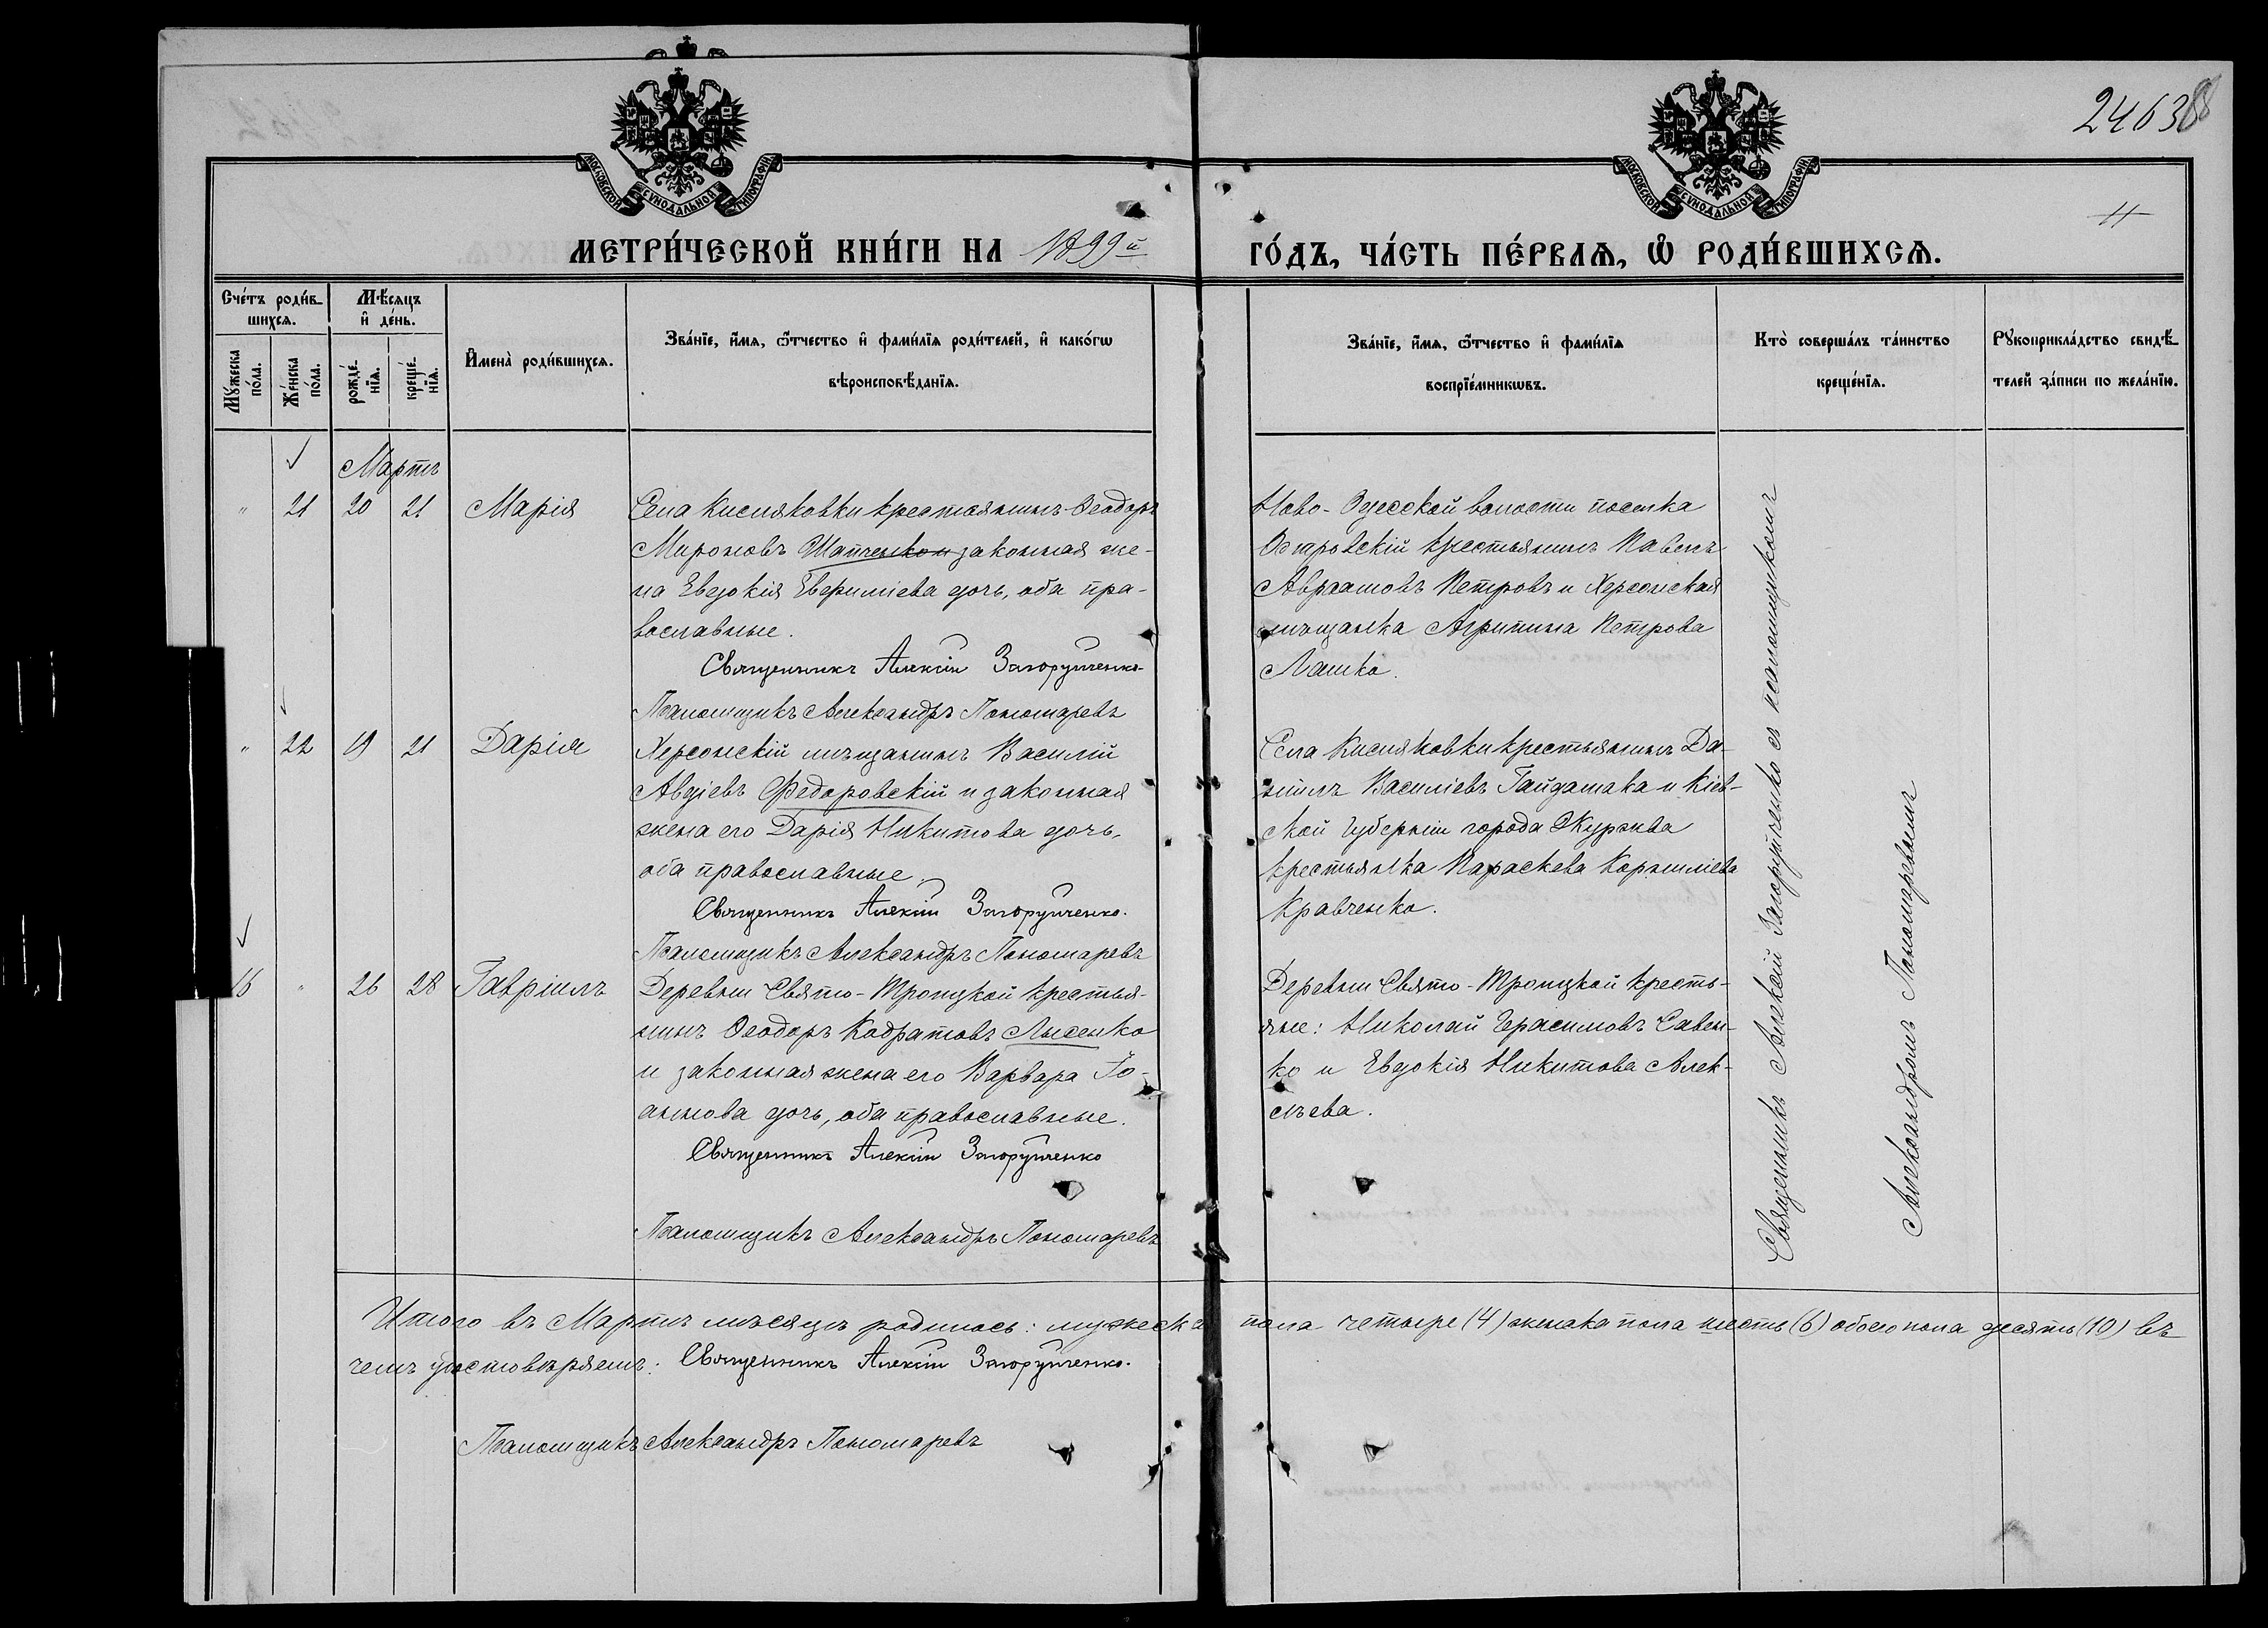 24638
МОСКОВСКОЙ СѴНОДАЛЬНОЙ ТИПОГРАФІИ
МОСКОВСКОЙ СѴНОДАЛЬНОЙ ТИПОГРАФІИ
МЕТРИ́ЧЕСКОЙ КНИ́ГИ НА 1899й ГО́ДЪ, ЧА́СТЬ ПЕ́РВАѦ, Ѽ РОДИ́ВШИХСѦ.
Сче́тъ роди́в-
шихсѧ.
Мѣ́сѧцъ
и҆ де́нь.
Мꙋ́жеска
по́ла.
Же́нска
по́ла.
рожде́-
нїѧ.
креще́-
нїѧ.
И҆мена̀ роди́вшихсѧ.
Зва́нїе, и҆́мѧ, ѻ҆́тчество и҆ фами́лїѧ роди́телей, и҆ како́гѡ
вѣроисповѣ́данїѧ.
Зва́нїе, и҆́мѧ, ѻ҆́тчество и҆ фами́лїѧ
воспрїе́мникѡвъ.
Кто̀ соверша́лъ та́инство
креще́нїѧ.
Рꙋкоприкла́дство свидѣ́-
телей за́писи по жела́нїю.
Мартъ
" 21 20 21 Марія
Села Кисляковки крестьянинъ Ѳеодоръ
Мироновъ законная же-
на Евдокія дочь, оба пра-
вославные.
Священникъ Алексій Загорупченко
Псаломщикъ Александръ Пономаревъ
Ново-Одесской волости поселка
крестьянинъ Павелъ
Авраамовъ Петровъ и Херсонская
мѣщанка Агрипина Петрова
Лашко.
" 22 19 21 Дарія
Херсонскій мѣщанинъ Василій
Авдіевъ Федоровскій и законная
жена его Дарія Никитова дочь,
оба православные.
Священникъ Алексій Загорупченко.
Псаломщикъ Александръ Пономаревъ
Села Кисляковки крестьянинъ Да-
ніилъ Василіевъ Гайдамака и Кіев-
ской губерніи города
крестьянка Параскева Корниліева
Кравченко.
16 " 26 28 Гавріилъ
Деревни Свято-Троицкой крестья-
нинъ Ѳеодоръ Кодратовъ Лысенко
и законная жена его Варвара Іо-
аннова дочь, оба православные.
Священникъ Алексій Загорупченко
Псаломщикъ Александръ Пономаревъ
Деревни Свято-Троицкой кресть-
яне: Николай Герасимовъ Савен-
ко и Евдокія Никитова Алек-
сѣева.
Священникъ Алексій Загорупченко съ псаломщикомъ
Александромъ Пономаревымъ
Итого въ Мартѣ мѣсяцѣ родилось: мужеска пола четыре (4) женска пола шесть (6) обоего пола десять (10) въ
чемъ удостовѣряемъ: Священникъ Алексій Загорупченко.
Псаломщикъ Александръ Пономаревъ